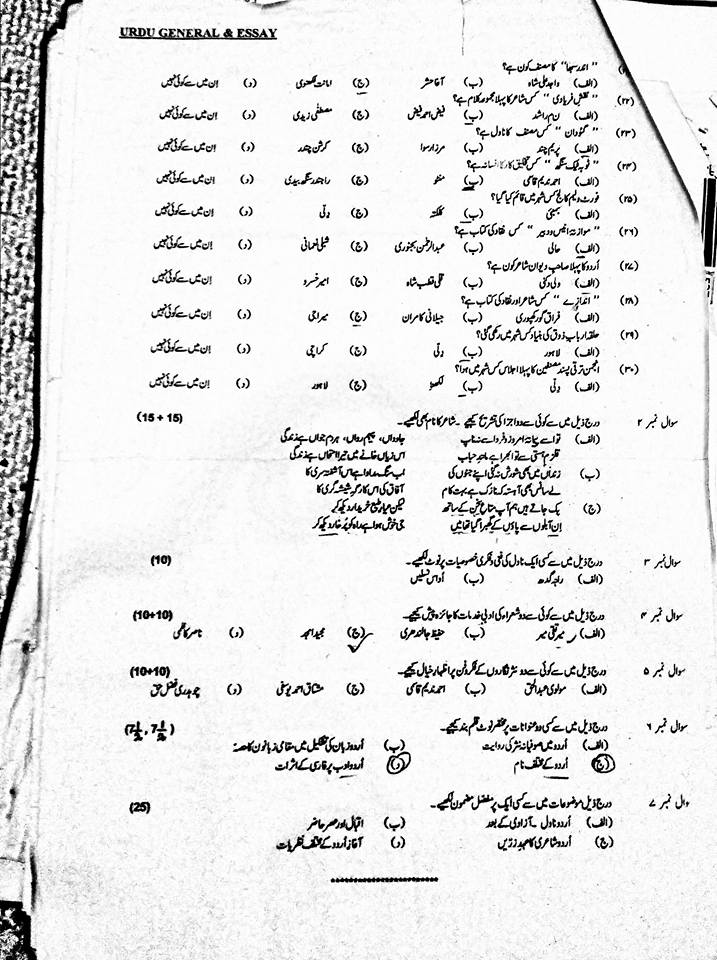 URDU GENERAL & ESSAY
"اندر سبھا" کا مصنف کون ہے؟
(الف) واجد علی شاہ (ب) آغا حشر (ج) امانت لکھنوی (د) اِن میں سے کوئی نہیں
(۲۲) "نقش فریادی" کس شاعر کا پہلا مجموعہ کلام ہے؟
(الف) ن م راشد (ب) فیض احمد فیض (ج) مصطفیٰ زیدی (د) اِن میں سے کوئی نہیں
(۲۳) "گئودان" کس مصنف کا ناول ہے؟
(الف) پریم چند (ب) مرزا رسوا (ج) کرشن چندر (د) اِن میں سے کوئی نہیں
(۲۴) "ٹوبہ ٹیک سنگھ" کس تخلیق کار کا افسانہ ہے؟
(الف) احمد ندیم قاسمی (ب) منٹو (ج) راجندر سنگھ بیدی (د) اِن میں سے کوئی نہیں
(۲۵) فورٹ ولیم کالج کس شہر میں قائم کیا گیا؟
(الف) بمبئی (ب) کلکتہ (ج) دِلّی (د) اِن میں سے کوئی نہیں
(۲۶) "موازنۂ انیس و دبیر" کس نقاد کی کتاب ہے؟
(الف) حالی (ب) عبدالرحمٰن بجنوری (ج) شبلی نعمانی (د) اِن میں سے کوئی نہیں
(۲۷) اُردو کا پہلا صاحبِ دیوان شاعر کون ہے؟
(الف) ولی دکنی (ب) قلی قطب شاہ (ج) امیر خسرو (د) اِن میں سے کوئی نہیں
(۲۸) "اندازے" کس شاعر اور نقاد کی کتاب ہے؟
(الف) فراق گورکھپوری (ب) جیلانی کامران (ج) میراجی (د) اِن میں سے کوئی نہیں
(۲۹) حلقہ ارباب ذوق کی بنیاد کس شہر میں رکھی گئی؟
(الف) لاہور (ب) دِلّی (ج) کراچی (د) اِن میں سے کوئی نہیں
(۳۰) انجمن ترقی پسند مصنفین کا پہلا اجلاس کس شہر میں ہوا؟
(الف) دِلّی (ب) لکھنؤ (ج) لاہور (د) اِن میں سے کوئی نہیں
سوال نمبر ۲ درج ذیل میں سے کوئی سے دو اجزا کی تشریح کیجیے۔ شاعر کا نام بھی لکھیے۔ (15 + 15)
(الف) تو اسے پیمانۂ امروز و فردا سے نہ ناپ جاوداں، پیہم دواں، ہر دم جواں ہے زندگی
قلزمِ ہستی سے تو ابھرا ہے مانندِ حباب اس زیاں خانے میں تیرا امتحاں ہے زندگی
(ب) زنداں میں بھی شورش نہ گئی اپنے جنوں کی اب سنگ مداوا ہے اس آشفتہ سری کا
لے سانس بھی آہستہ کہ نازک ہے بہت کام آفاق کی اس کارگہِ شیشہ گری کا
(ج) بک جاتے ہیں ہم آپ متاعِ سخن کے ساتھ لیکن عیارِ طبعِ خریدار دیکھ کر
اِن آبلوں سے پاؤں کے گھبرا گیا تھا میں جی خوش ہوا ہے راہ کو پُرخار دیکھ کر
سوال نمبر ۳ درج ذیل میں سے کسی ایک ناول کی فنی و فکری خصوصیات پر نوٹ لکھیے۔ (10)
(الف) راجہ گدھ (ب) اُداس نسلیں
سوال نمبر ۴ درج ذیل میں سے کوئی سے دو شعراء کی ادبی خدمات کا جائزہ پیش کیجیے۔ (10+10)
(الف) میر تقی میر (ب) حفیظ جالندھری (ج) مجید امجد (د) ناصر کاظمی
سوال نمبر ۵ درج ذیل میں سے کوئی سے دو نثر نگاروں کے فکر و فن پر اظہار خیال کیجیے۔ (10+10)
(الف) مولوی عبدالحق (ب) احمد ندیم قاسمی (ج) مشتاق احمد یوسفی (د) چوہدری فضل حق
سوال نمبر ۶ درج ذیل میں سے کسی دو عنوانات پر مختصر نوٹ قلم بند کیجیے۔ (7½, 7½)
(الف) اُردو میں صوفیانہ نثر کی روایت (ب) اُردو زبان کی تشکیل میں مقامی زبانوں کا حصہ
(ج) اُردو کے مختلف نام (د) اُردو ادب پر فارسی کے اثرات
وال نمبر ۷ درج ذیل موضوعات میں سے کسی ایک پر مفصل مضمون لکھیے۔ (25)
(الف) اُردو ناول ۔ آزادی کے بعد (ب) اقبال اور عصر حاضر
(ج) اُردو شاعری کا عہدِ زرّیں (د) آغازِ اُردو کے مختلف نظریات